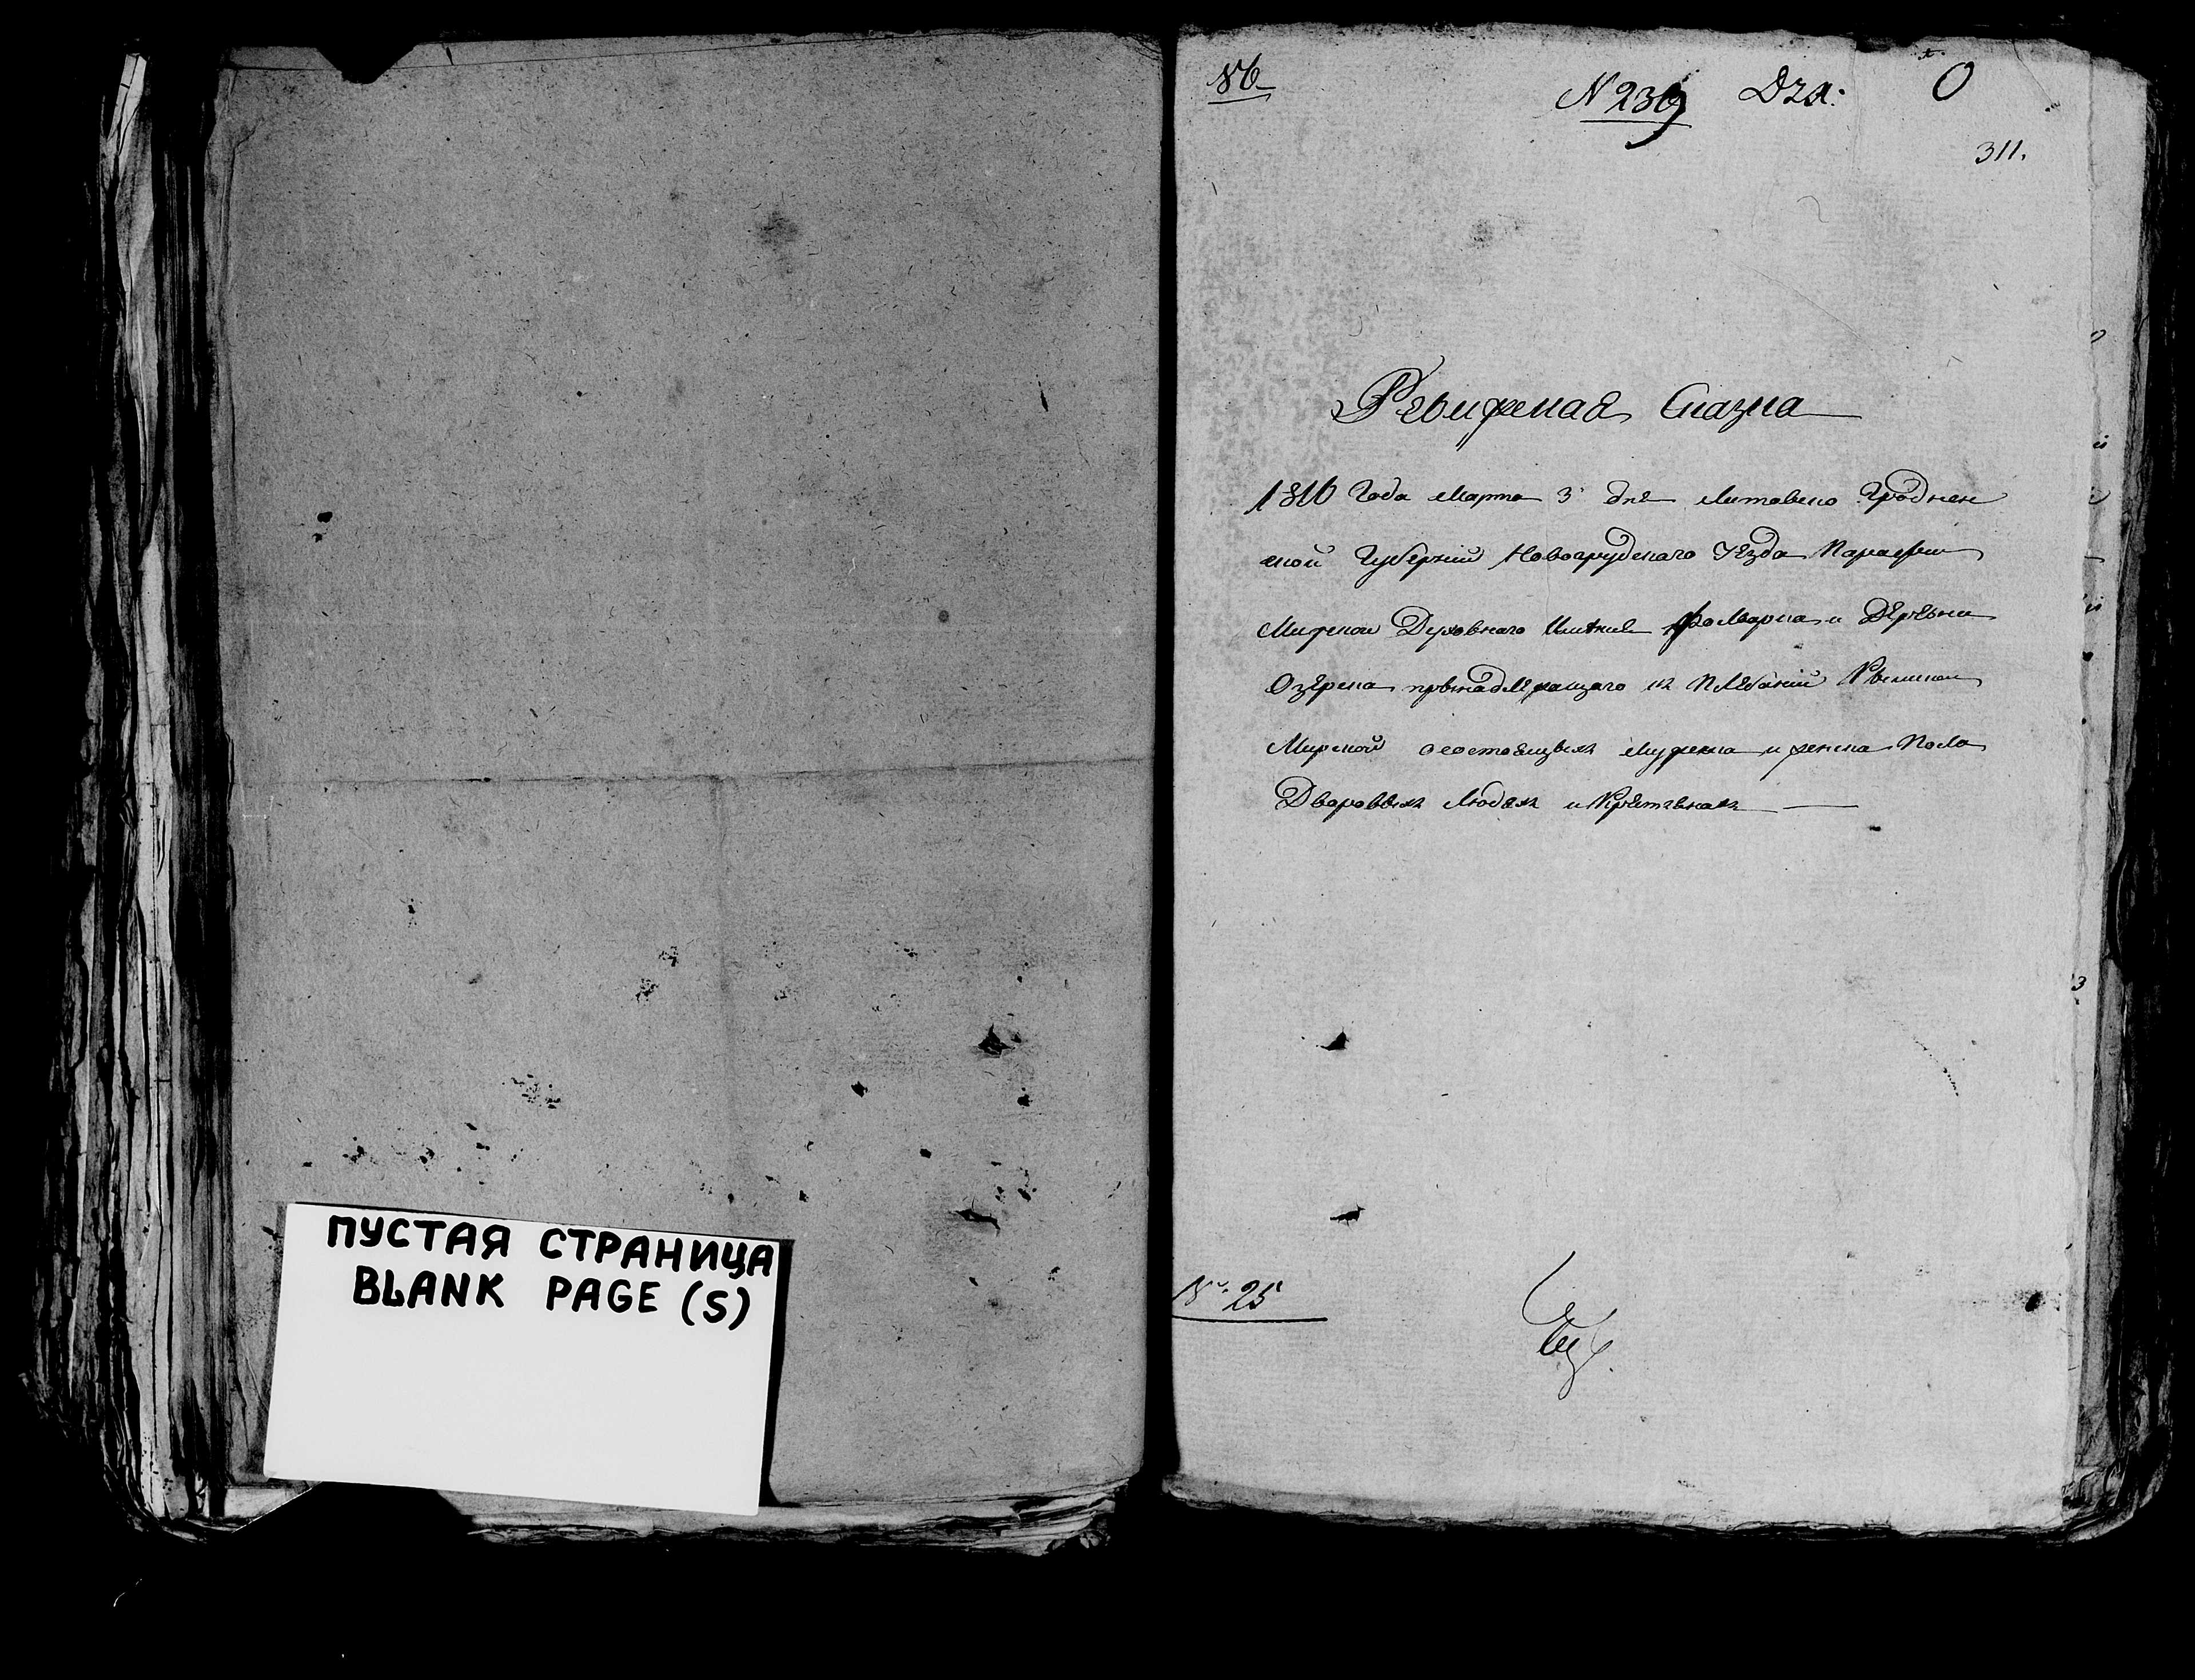 ПУСТАЯ СТРАНИЦА
BLANK PAGE (S)
86
N 239
O
311.
Ревижская Сказка
1816 Года Марта 3 дня Литовско Гроднен
ской Губерний Новогрудскаго Уезда Парафии
Мирской Духовнаго Имения Фольварка и Деревни
Озерска принадлежащаго к Плебании Рымской
Мирской о состоящих мужеска и женска Пола
Дворовых Людех и Крестьянах
№ 25